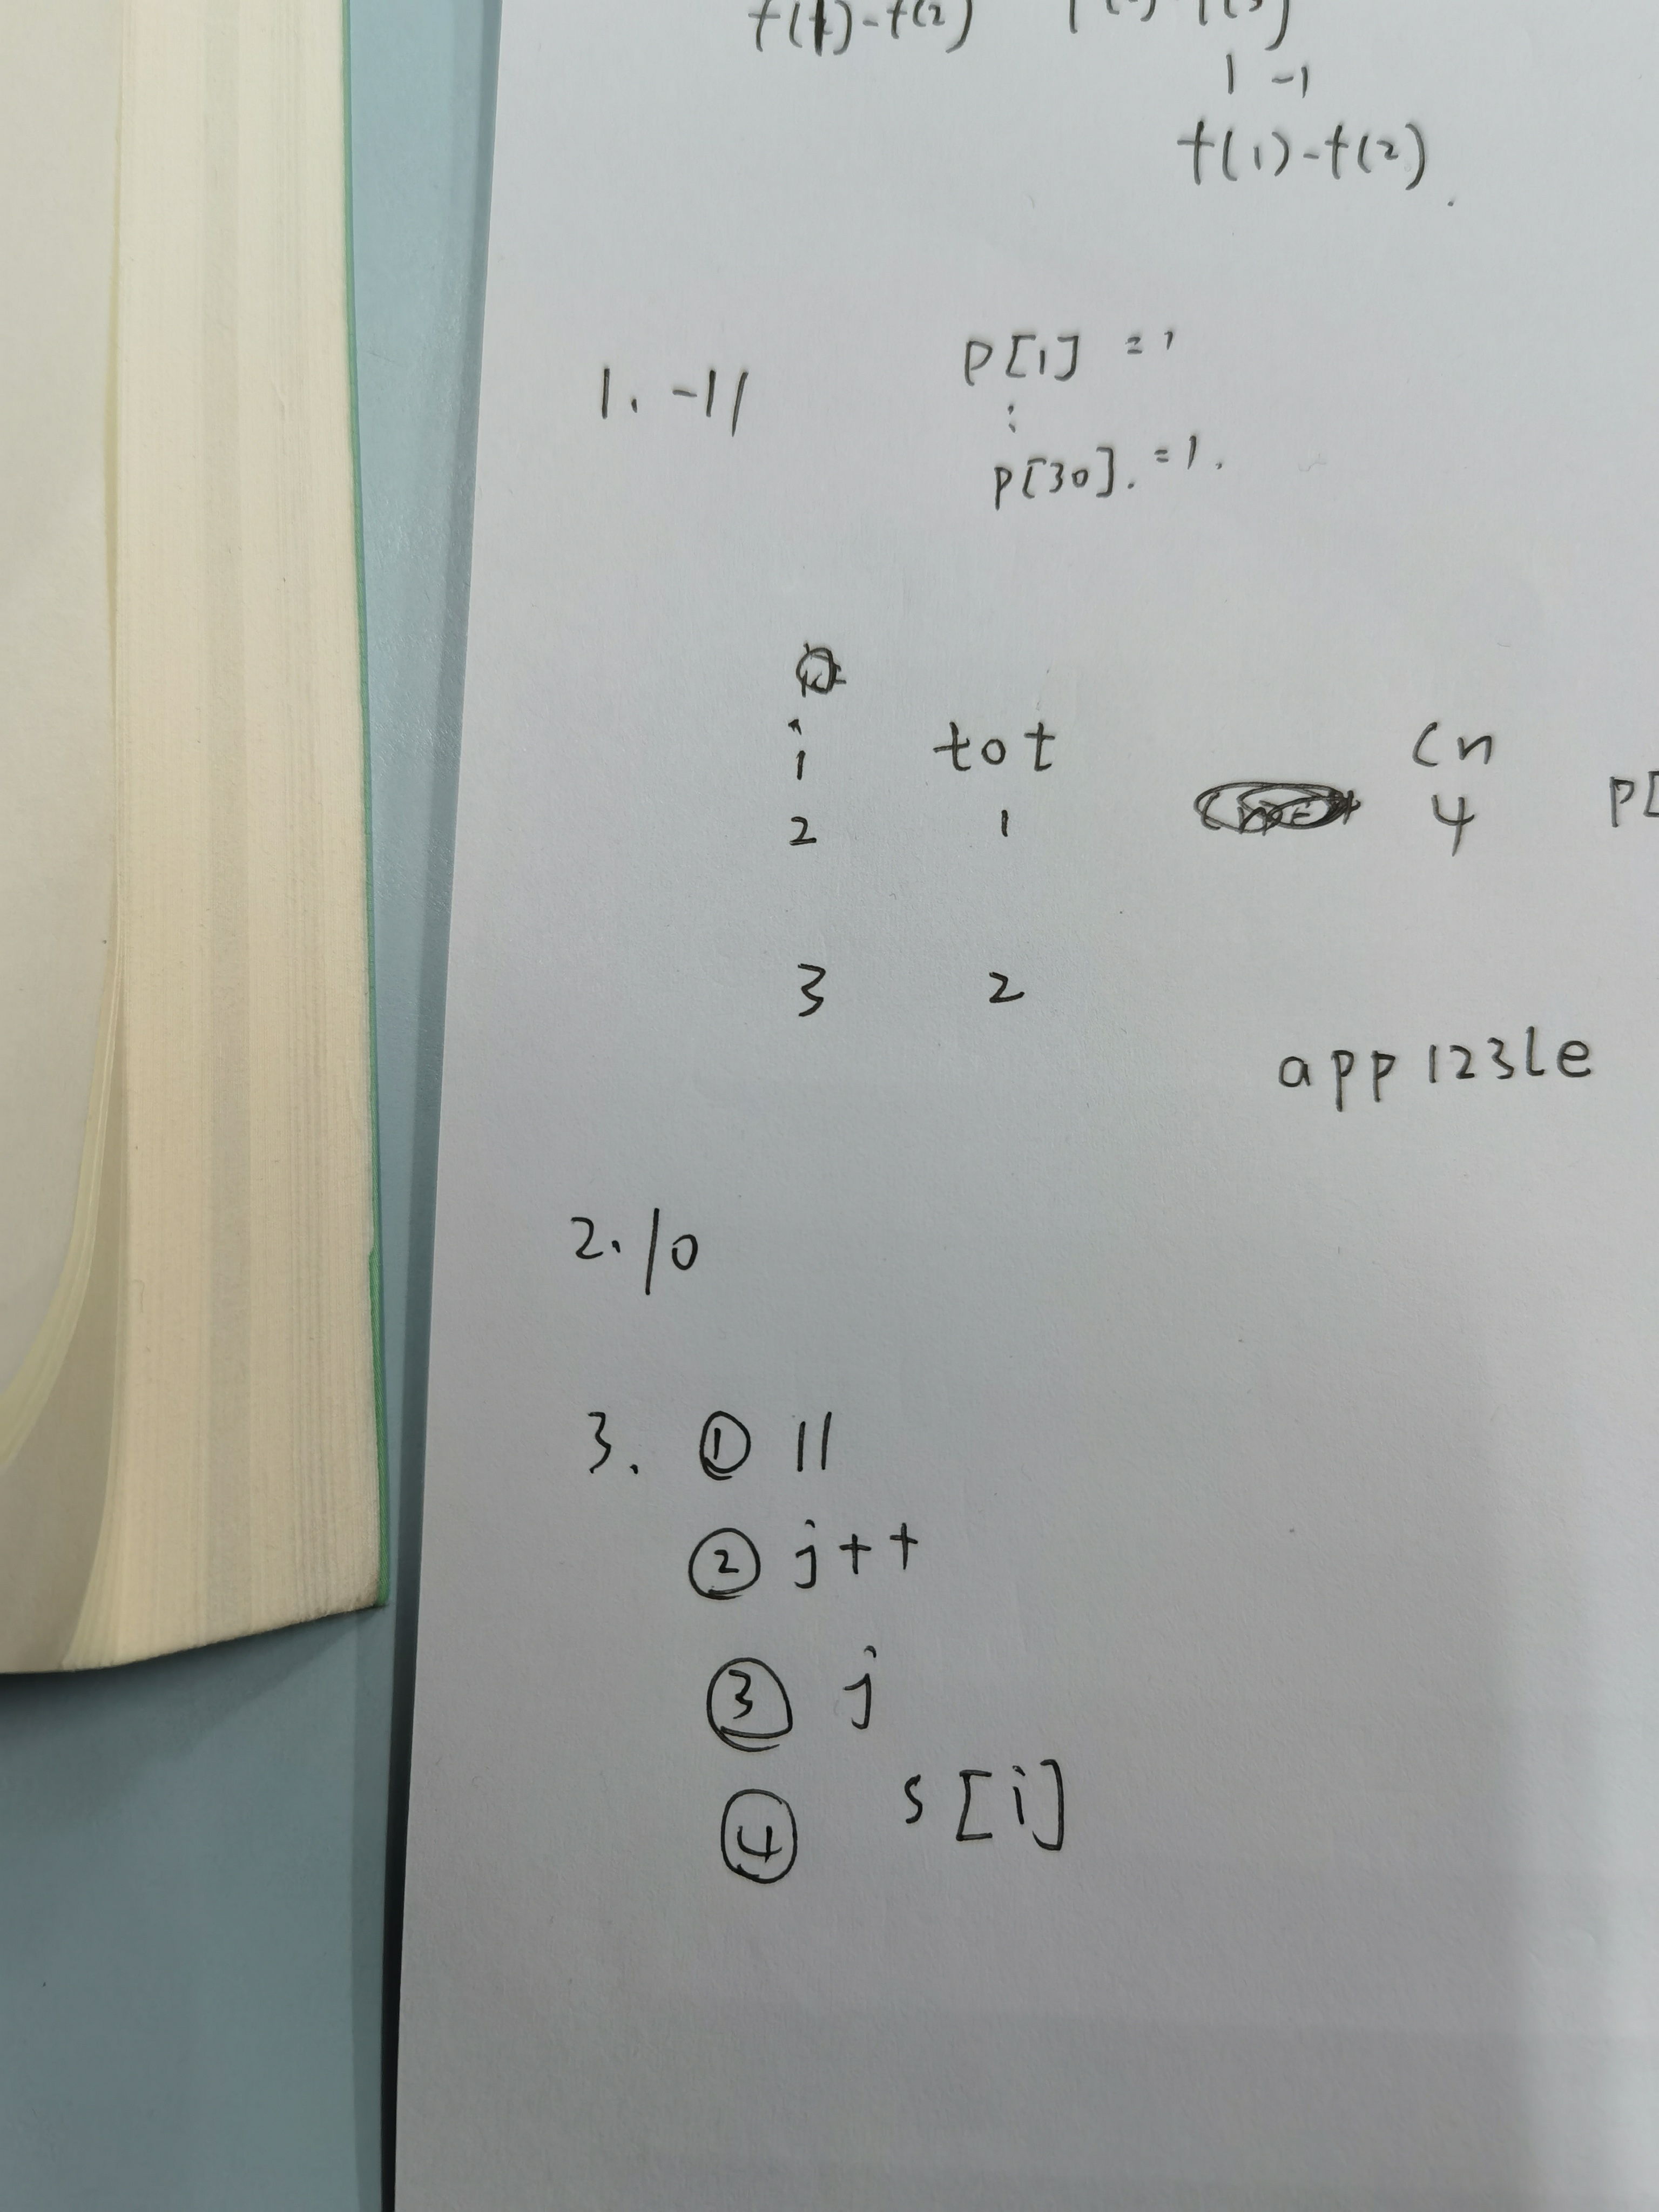 f(1)-f(2)
1 -1
f(1)-f(2).
1. -11
p[1] =1
:
p[30]. =1.
i tot cn
1
2 1 4 p[
3 2
app123le
2. 10
3. ① ||
② j++
③ j
④ s[i]